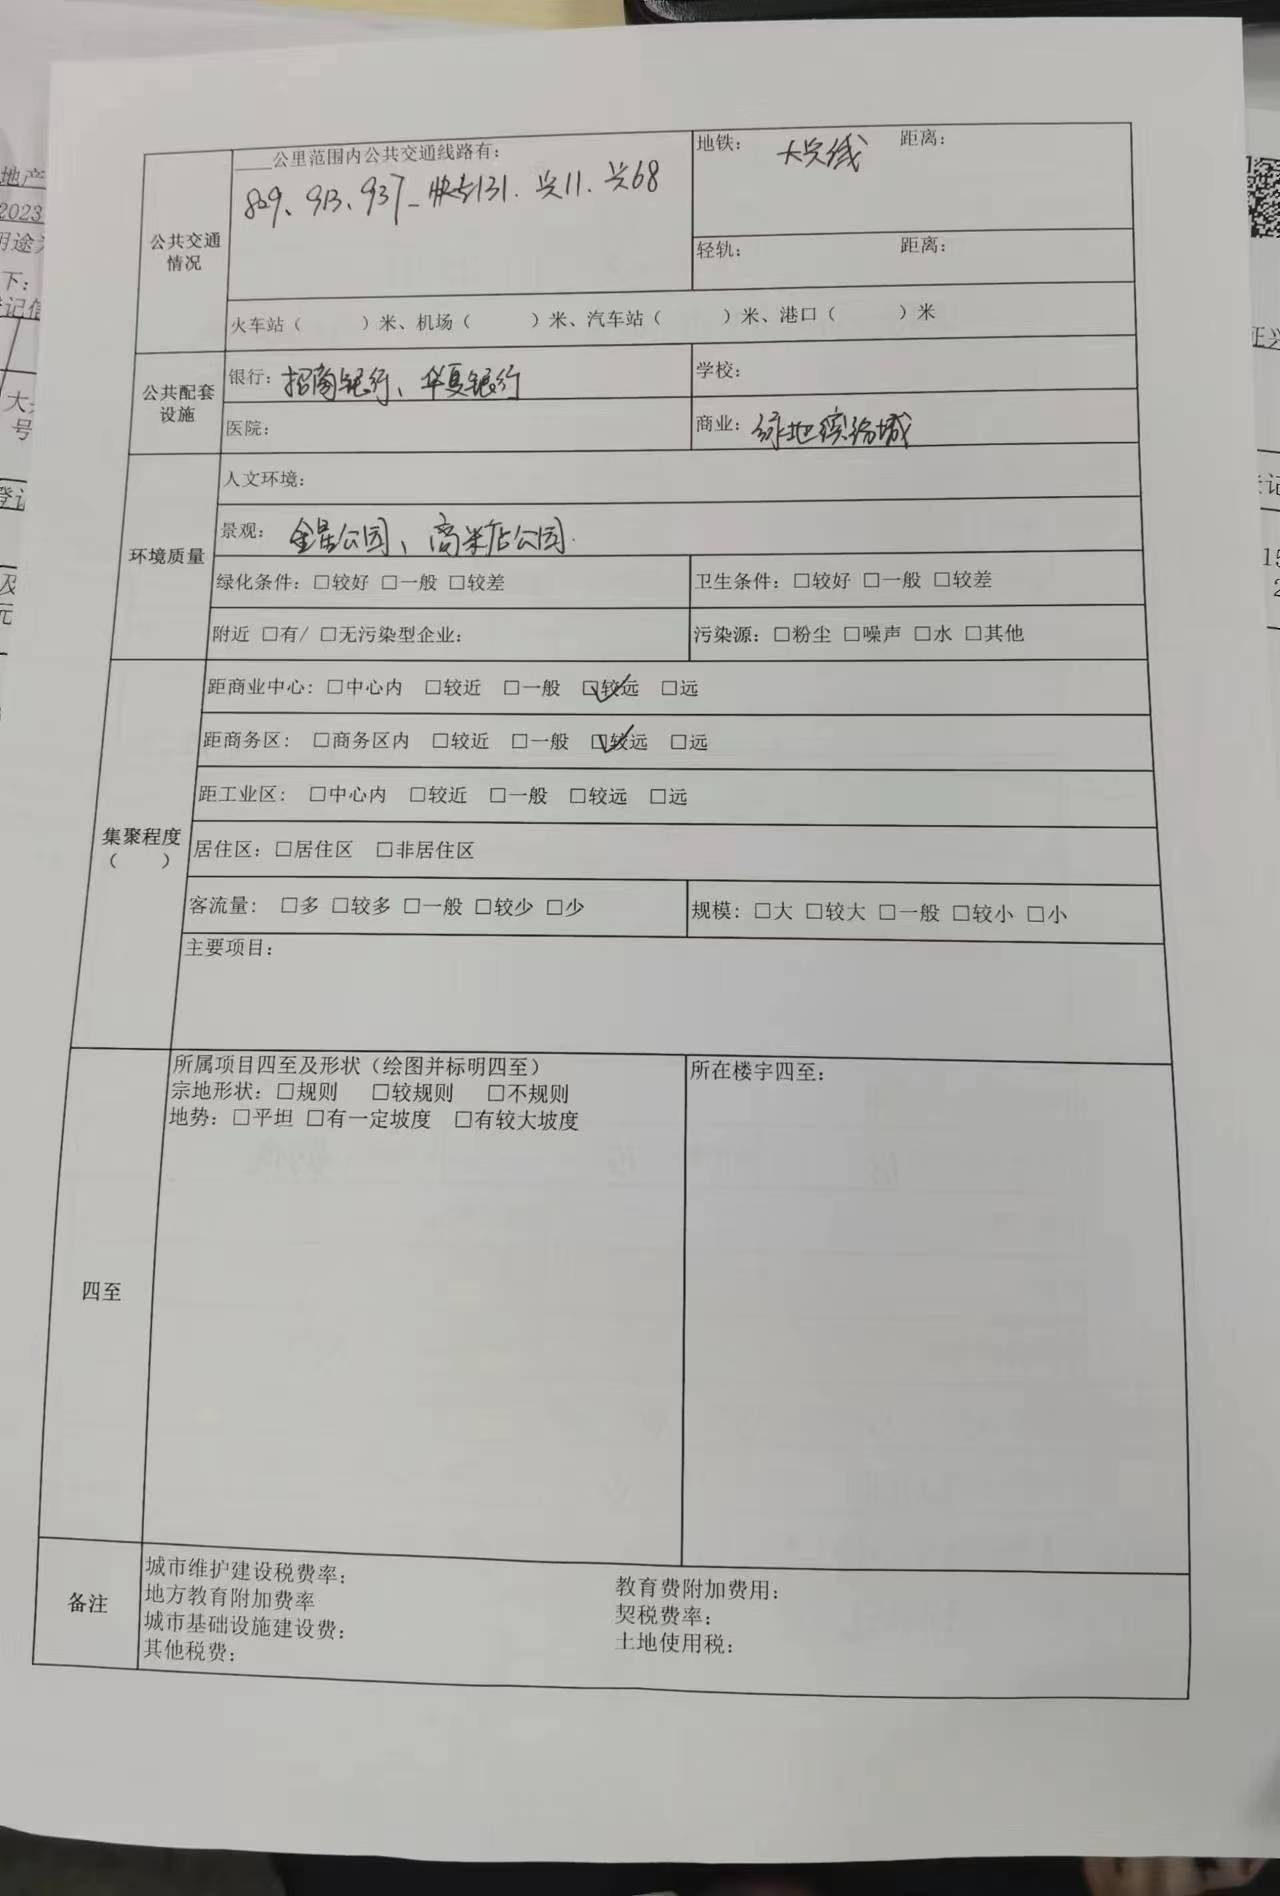 ____公里范围内公共交通线路有：
829、913、937、快专131、兴11、兴68
地铁： 大兴线 距离：
轻轨： 距离：
公共交通
情况
火车站（ ）米、机场（ ）米、汽车站（ ）米、港口（ ）米
公共配套
设施
银行：招商银行、华夏银行
学校：
医院：
商业：绿地缤纷城
环境质量
人文环境：
景观：金星公园、高米店公园.
绿化条件：□较好 □一般 □较差
卫生条件：□较好 □一般 □较差
附近 □有/ □无污染型企业：
污染源：□粉尘 □噪声 □水 □其他
集聚程度
（ ）
距商业中心：□中心内 □较近 □一般 ☑较远 □远
距商务区： □商务区内 □较近 □一般 ☑较远 □远
距工业区： □中心内 □较近 □一般 □较远 □远
居住区：□居住区 □非居住区
客流量： □多 □较多 □一般 □较少 □少
规模：□大 □较大 □一般 □较小 □小
主要项目：
四至
所属项目四至及形状（绘图并标明四至）
宗地形状：□规则 □较规则 □不规则
地势：□平坦 □有一定坡度 □有较大坡度
所在楼宇四至：
备注
城市维护建设税费率：
地方教育附加费率
城市基础设施建设费：
其他税费：
教育费附加费用：
契税费率：
土地使用税：
地产
2023
下：
号